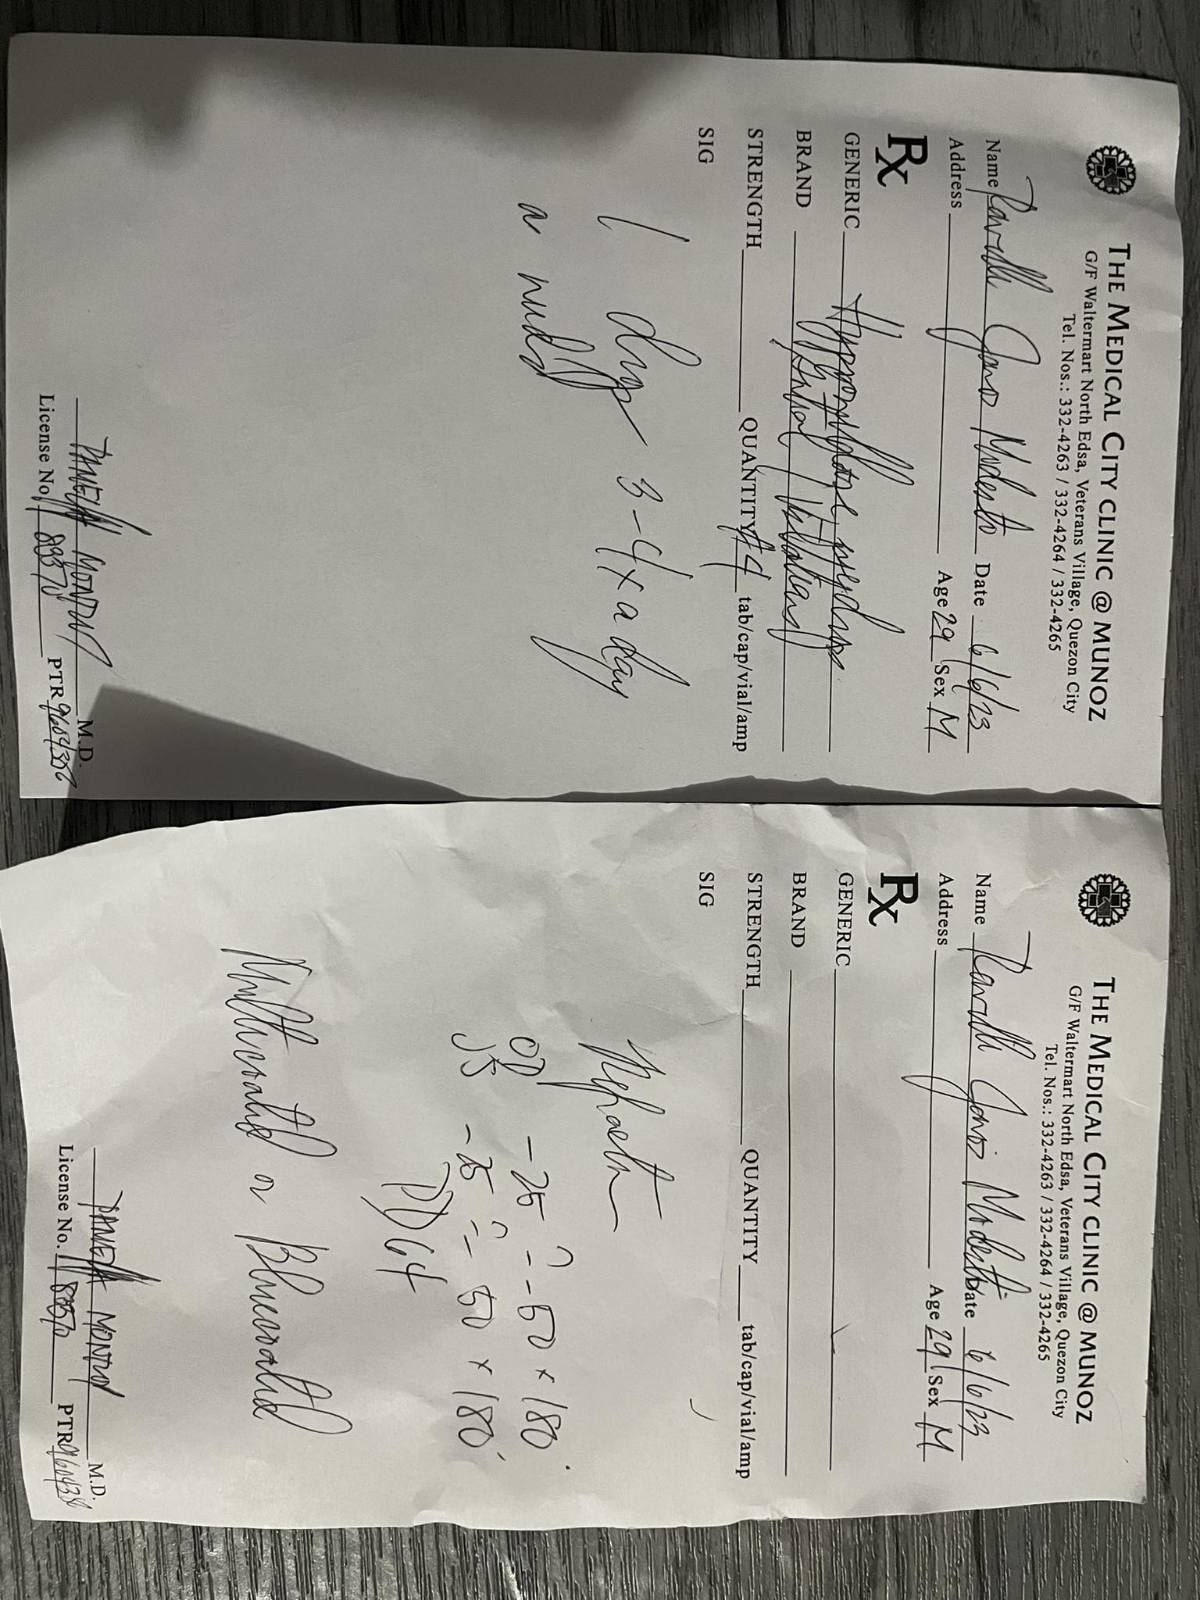 THE MEDICAL CITY CLINIC @ MUNOZ
G/F Waltermart North Edsa, Veterans Village, Quezon City
Tel. Nos.: 332-4263 / 332-4264 / 332-4265
Name Date 6/6/23
Address Age 29 Sex M
Rx
GENERIC
BRAND
STRENGTH QUANTITY #4 tab/cap/vial/amp
SIG
1 drop 3-4x a day
a needed
M.D.
License No. PTR
THE MEDICAL CITY CLINIC @ MUNOZ
G/F Waltermart North Edsa, Veterans Village, Quezon City
Tel. Nos.: 332-4263 / 332-4264 / 332-4265
Name Date 6/6/23
Address Age 29 Sex M
Rx
GENERIC
BRAND
STRENGTH QUANTITY tab/cap/vial/amp
SIG
OD -25 = -50 x 180
OS -25 = -50 x 180
PD 64
Multicoated or Bluecoated
M.D.
License No. PTR